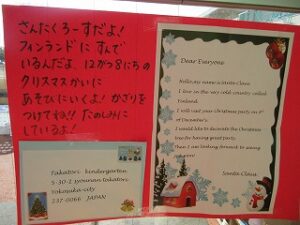 さんたくろーすだよ!
フィンランドに すんで
いるんだよ。12がつ8にちの
クリスマスかいに
あそびにいくよ! かざりを
つけてね!! たのしみに
しているよ!
Dear Everyone
Hello, my name is Santa Claus.
I live in the very cold country called
Finland.
I will visit your Christmas party on 8th
of December's.
I would like to decorate the Christmas
tree for having great party.
Then I am looking forward to seeing
you soon!
Santa Claus
Takatori kindergarten
5-30-2 syounan-takatori
Yokosuka-city
237-0066 JAPAN